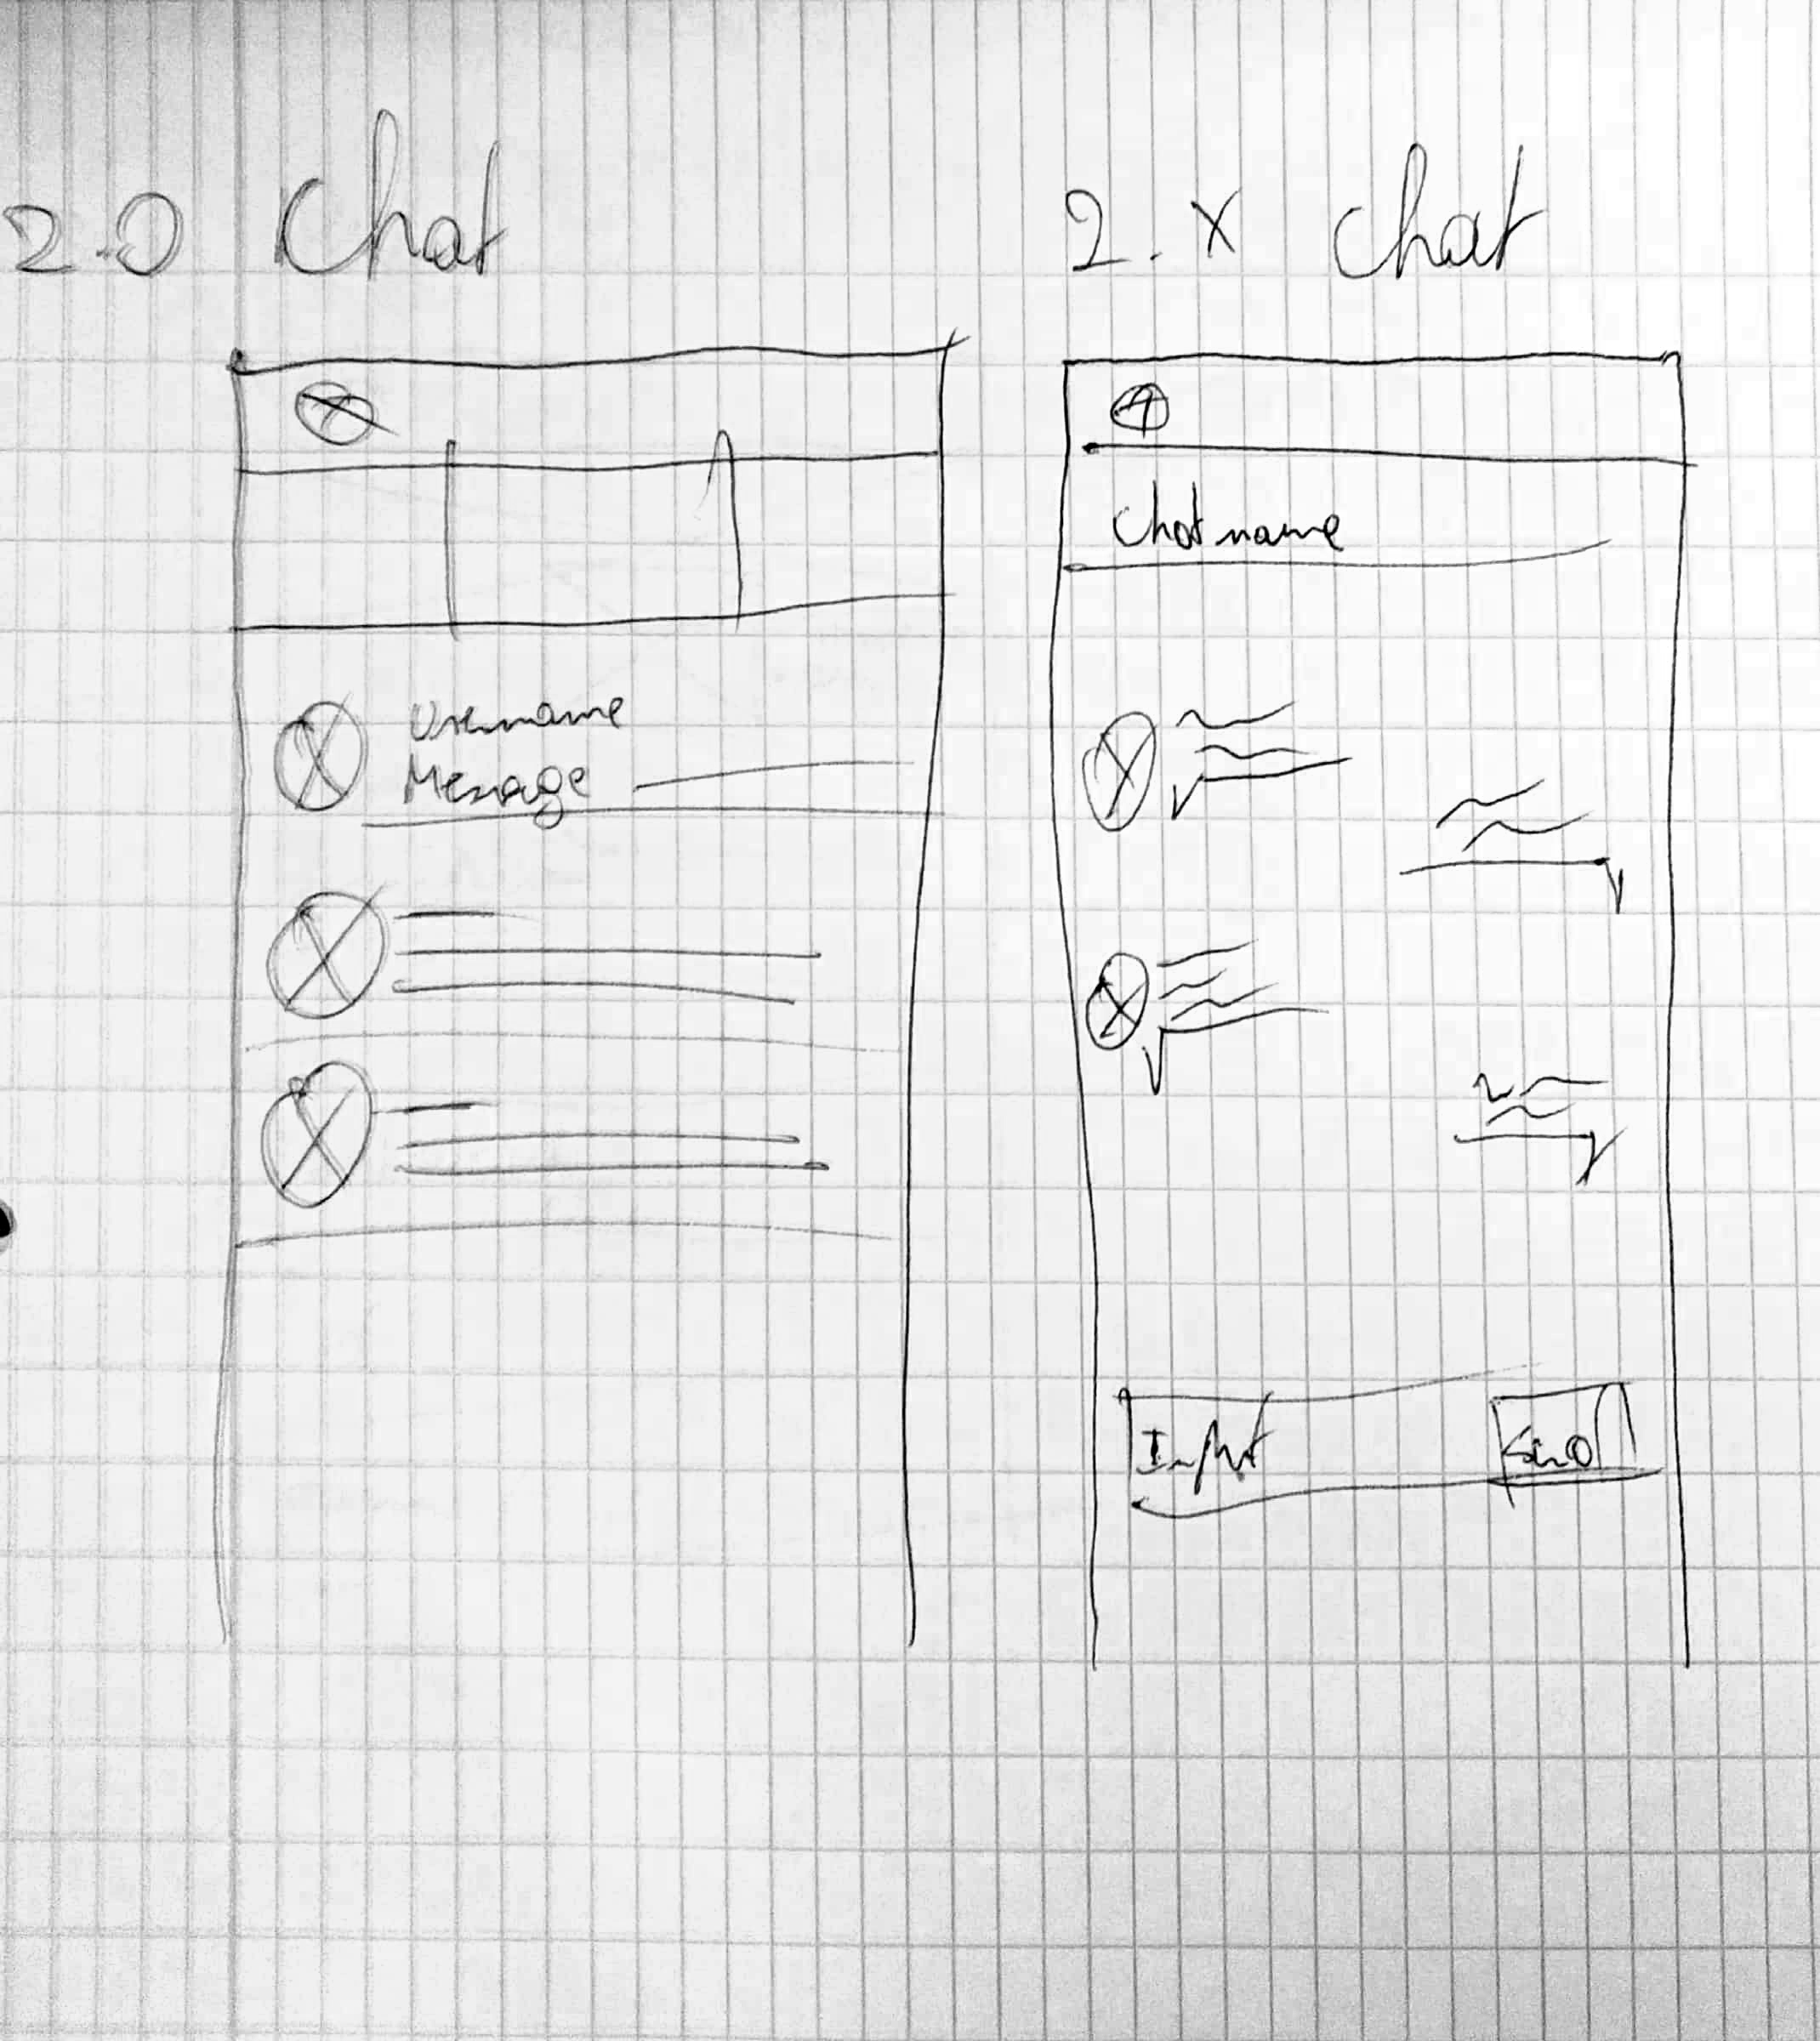 2.0 Chat
Username
Message
2.x Chat
Chat name
Input
Send